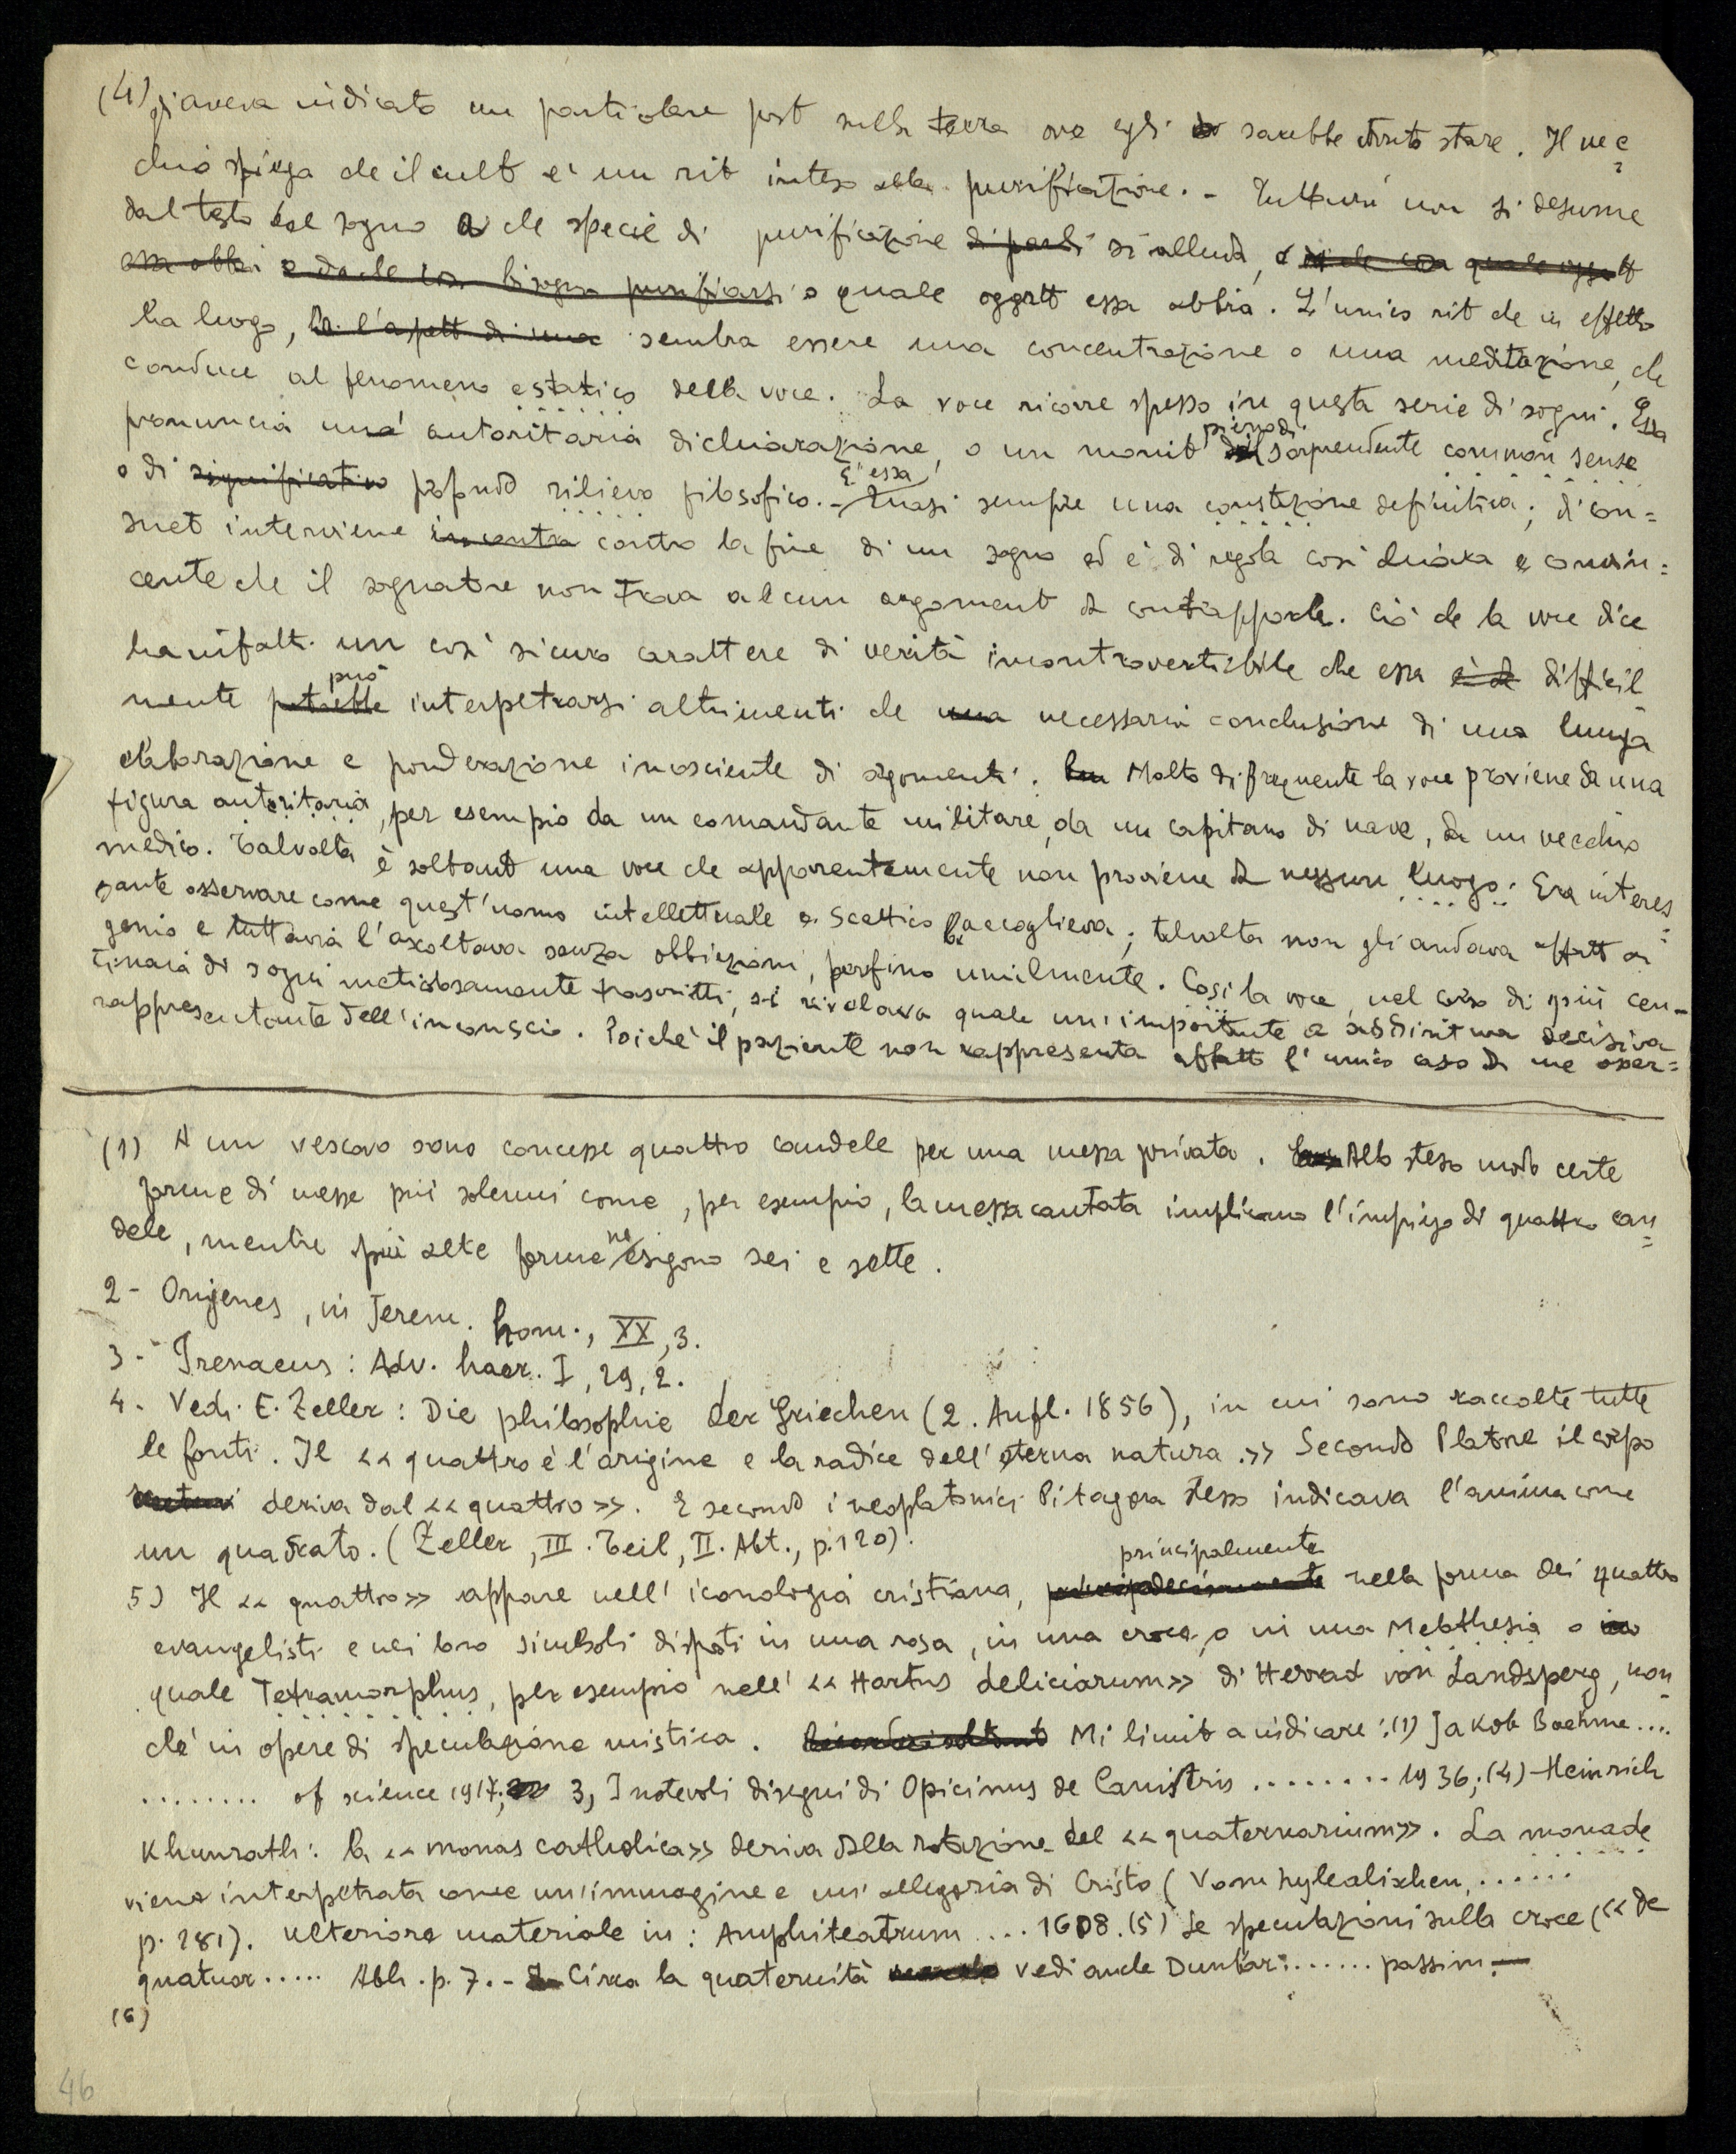 (4) gi aveva indicato un particolare post sulla terra ove egli sarebbe dovuto stare. Il vec=
chio spiega che il cult e' un rit inteso alla purificazione. - Tuttavia non si desume
dal testo del sogno a che specie di purificazione di parli si alluda, e di che cosa quale oggett
essa abbia o da che cosa bisogna purificarsi o quale oggett essa abbia. L'unico rit che in effetto
ha luogo, ha l'aspett di una sembra essere una concentrazione o una meditazione, che
conduce al fenomeno estatico della voce. La voce ricorre spesso in questa serie di sogni. Essa
pronuncia una autoritaria dichiarazione, o un monit pieno di sorprendente common sense
o di significativo profondo rilievo filosofico. - È essa quasi sempre una constatazione definitiva; di con=
suet interviene incontra contro la fine di un sogno ed è di regola così chiara e convin=
cente che il sognatore non trova alcun argoment da contrapporle. Ciò che la voce dice
ha infatti un così sicuro carattere di verità incontrovertibile che essa è da difficil
mente potrebbe può interpetrarsi altrimenti che una necessaria conclusione di una lunga
elaborazione e ponderazione inosciente di argomenti. Molto di frequente la voce proviene da una
figura autoritaria, per esempio da un comandante militare, da un capitano di nave, da un vecchio
medico. Talvolta è soltant una voce che apparentemente non proviene da nessun luogo. Era interes=
sante osservare come quest'uomo intellettuale e scettico la accoglieva; talvolta non gli andava affatt a
genio e tuttavia l'ascoltava senza obbiezioni, perfino umilmente. Così la voce, nel corso di più cen-
tinaia di sogni meticolosamente trascritti, si rivelava quale un'importante e addirittura decisiva
rappresentante dell'inconscio. Poiché il paziente non rappresenta affatto l'unico caso da me osser=
(1) A un vescovo sono concesse quattro candele per una messa privata. Allo steso modo certe
forme di messe più solenni come, per esempio, la messa cantata implicano l'impiego di quattro can=
dele, mentre più alte forme ne esigono sei e sette.
2- Origenes, in Jerem. hom., XX, 3.
3- Irenaeus: Adv. haer. I, 29, 2.
4- Vedi E. Zeller: Die philosophie der Griechen (2. Aufl. 1856), in cui sono raccolte tutte
le fonti. Il «quattro è l'origine e la radice dell'eterna natura.» Secondo Platone il corpo
deriva dal «quattro». E second i neoplatonici Pitagora stesso indicava l'anima come
un quadrato. (Zeller, III. Teil, II. Abt., p. 120).
5) Il «quattro» appare nell'iconologia cristiana, principalmente nella forma dei quattro
evangelisti e nei loro simboli disposti in una rosa, in una croce, o in una Melothesia o
quale Tetramorphus, per esempio nell'«Hortus deliciarum» di Herrad von Landsperg, non=
ché in opere di speculazione mistica. Ricorderò soltanto Mi limit a indicare: (1) Jakob Boehme....
........ of science 1917; 3, I notevoli disegni di Opicinus de Canistris ........ 1936; (4) - Heinrich
Khunrath: la «monas catholica» deriva dalla rotazione del «quaternarium». La monade
viene interpetrata come un'immagine e un'allegoria di Cristo (Vom hylealischen, ......
p. 281). Ulteriore materiale in: Amphiteatrum .... 1608. (5) Le speculazioni sulla croce («de
quatuor..... Abh. p. 7. - Circa la quaternità vedi anche Dunbar: ...... passim. -
(6)
46